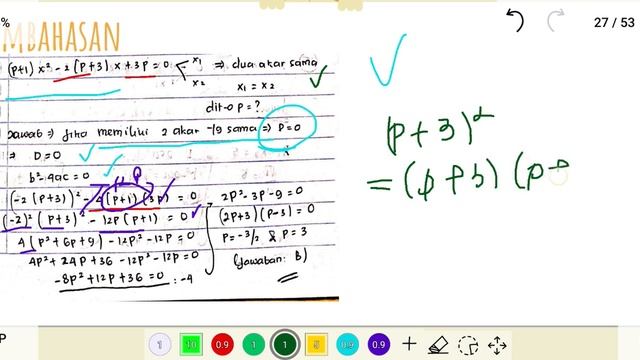 %
27 / 53
MBAHASAN
(P+1) x² - 2 (P+3) x + 3P = 0 < x₁ x₂ ⇒ dua akar sama
x₁ = x₂
dit-o P = ?
Jawab ⇒ jika memiliki 2 akar -19 sama ⇒ P = 0
⇒ D = 0
b² - 4ac = 0
(-2 (P+3))² - 4 (P+1) (3P) = 0
(-2)² (P+3)² - 12P (P+1) = 0
4 (P² + 6P + 9) - 12P² - 12P = 0
4P² + 24P + 36 - 12P² - 12P = 0
-8P² + 12P + 36 = 0 : -4
2P² - 3P - 9 = 0
(2P+3) (P-3) = 0
P = -3/2 & P = 3
(Jawaban : B)
(p + 3)²
= (p + 3) (p +
P
1 10 0.9 1 1 5 0.9 0.9